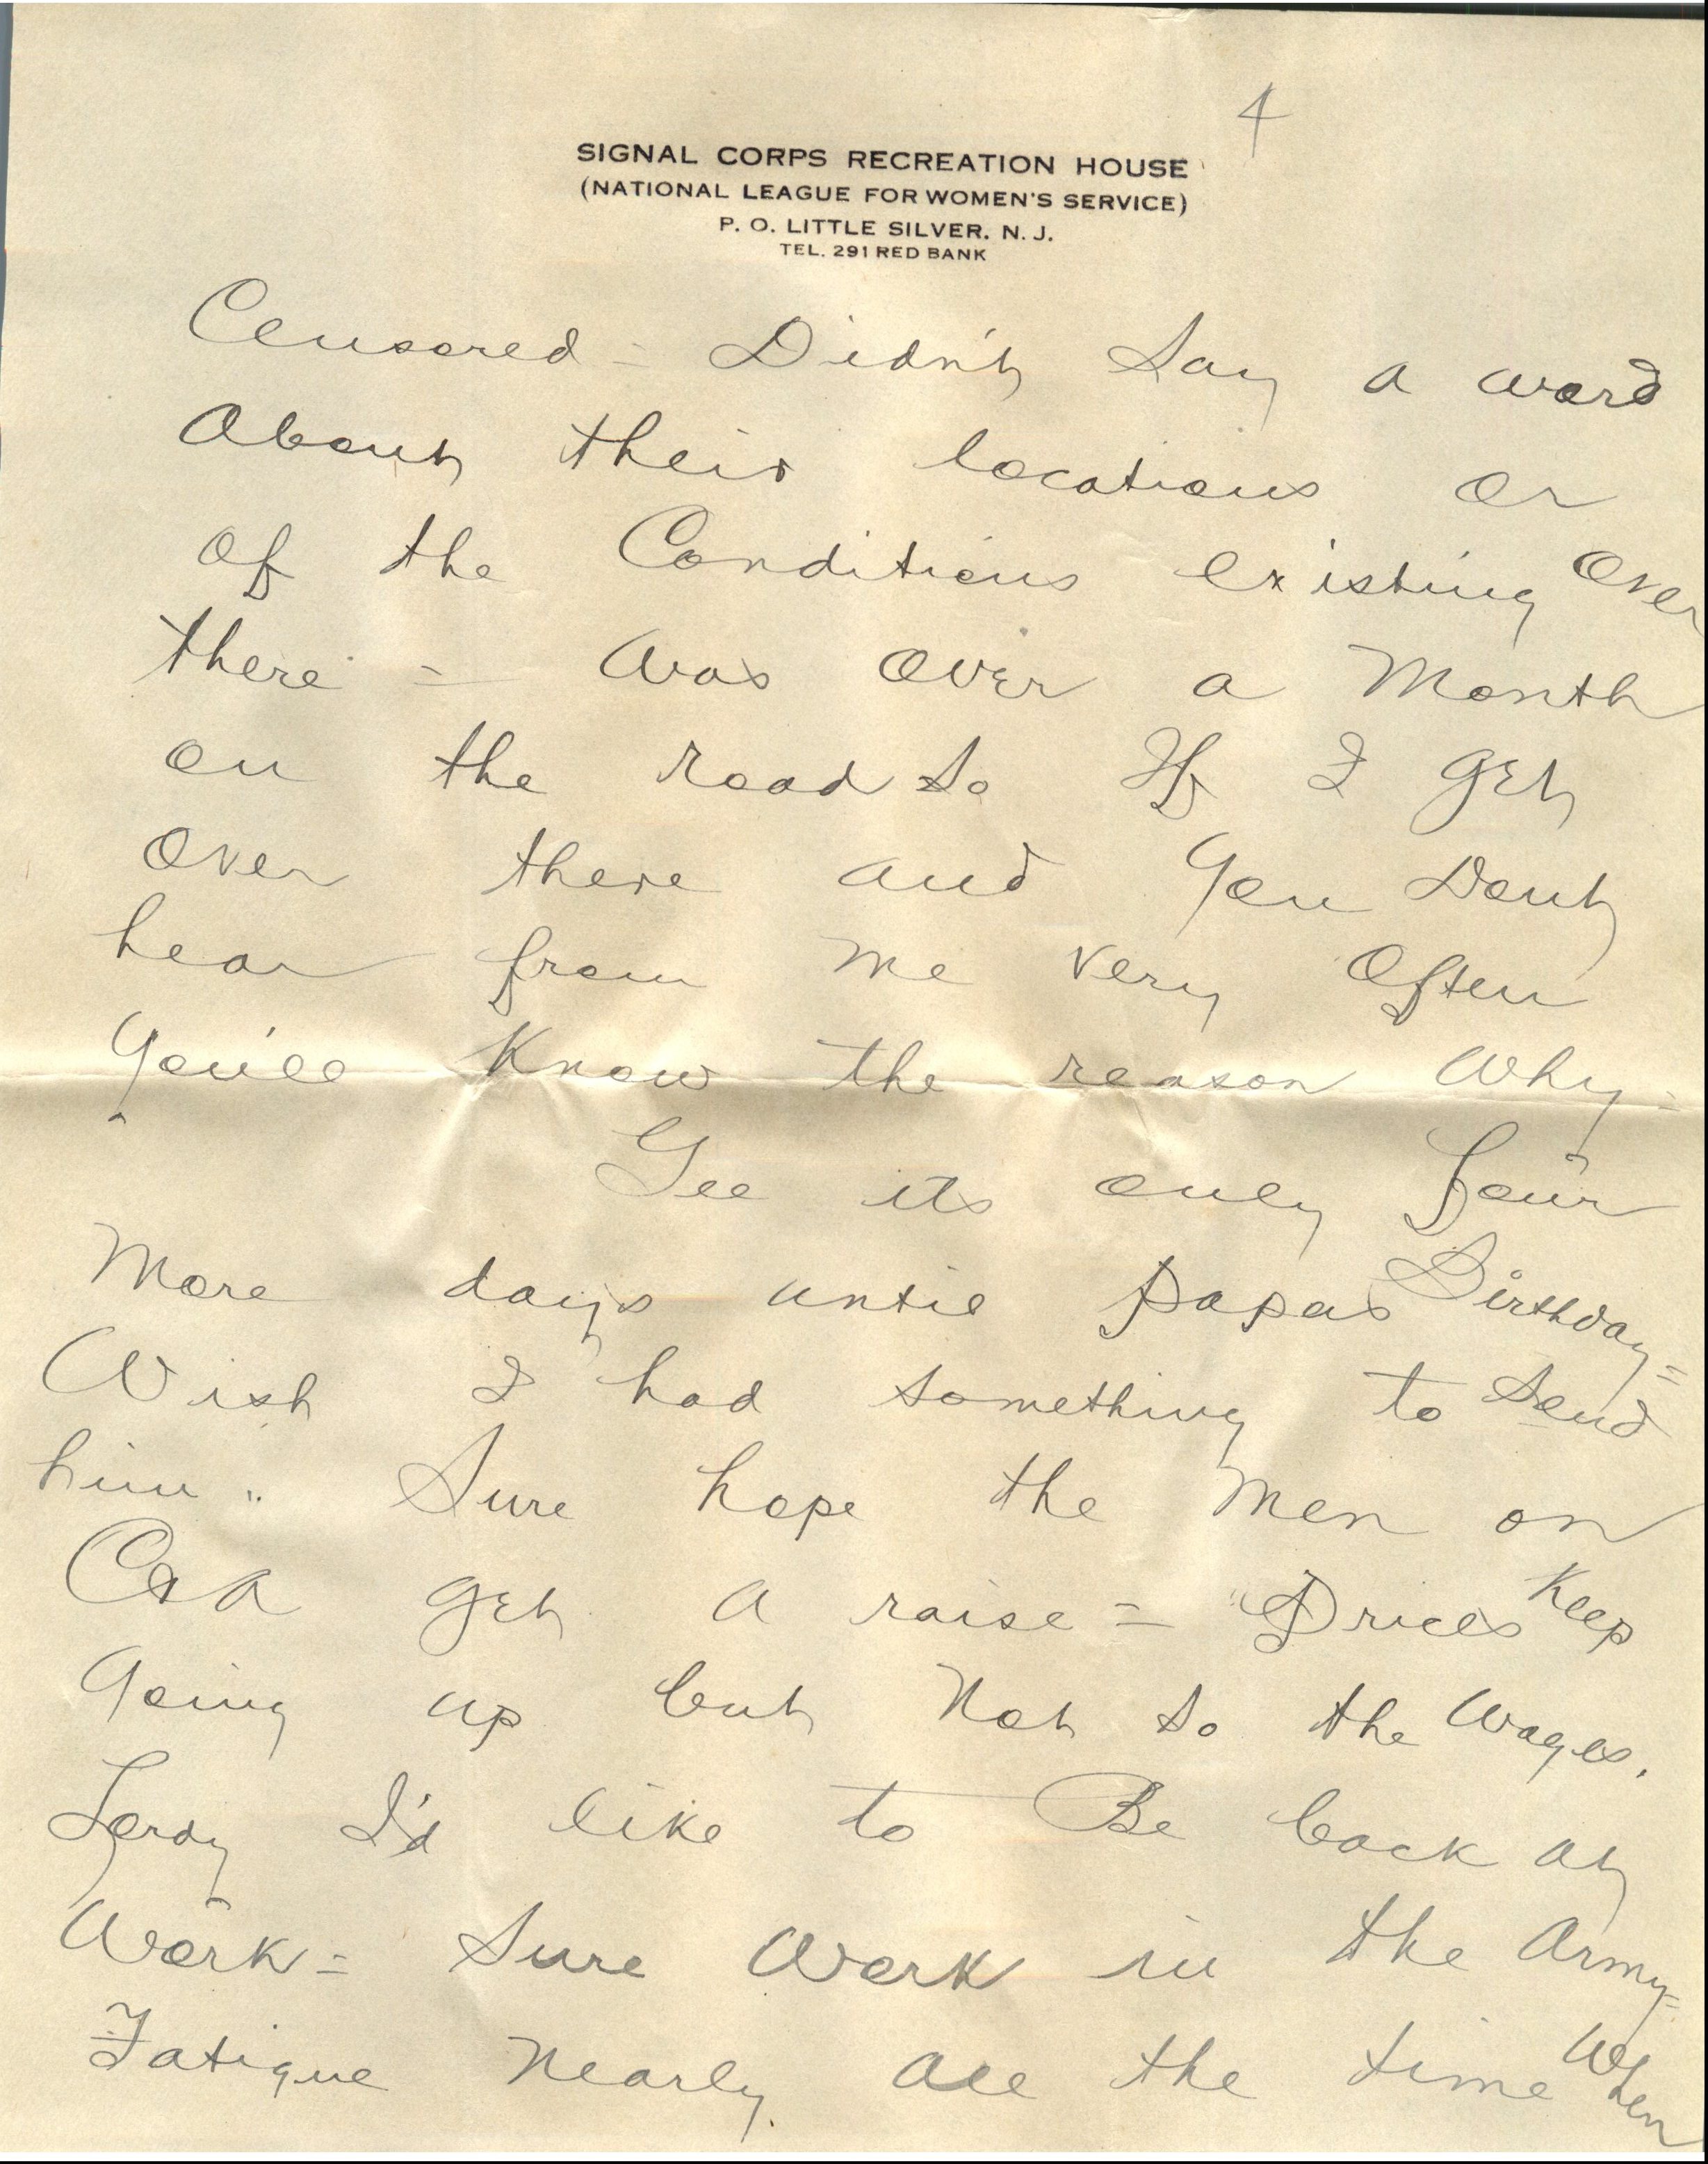 4
SIGNAL CORPS RECREATION HOUSE
(NATIONAL LEAGUE FOR WOMEN'S SERVICE)
P. O. LITTLE SILVER, N. J.
TEL. 291 RED BANK
Censored = Didn't Say a word
About their locations or
of the Conditions existing over
there = Was over a Month
on the road so If I get
over there and you Don't
hear from me very often
You'll Know the reason Why =
Gee its only four
More days until papas Birthday =
Wish I had something to Send
him .. Sure hope the Men on
C & A get a raise = Prices Keep
Going up but Not so the Wages.
Lordy I'd like to Be back at
Work = Sure Work in the Army =
Fatigue Nearly all the time When